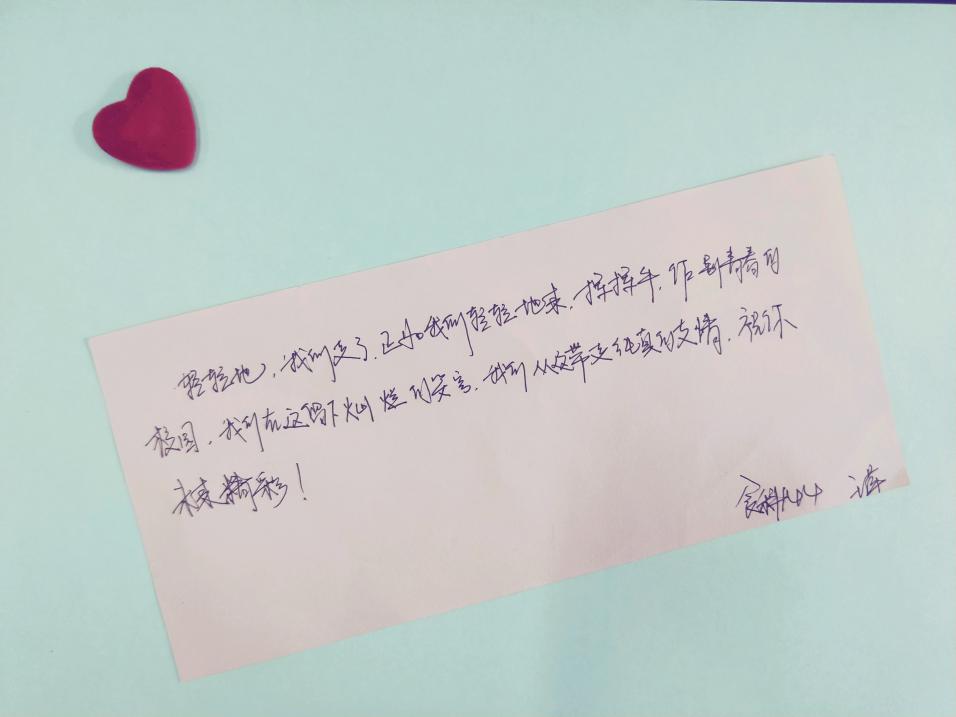 轻轻地,我们走了,正如我们轻轻地来,挥挥手,作别青春的
校园,我们在这留下灿烂的笑容,我们从这带走纯真的友情,祝你
未来精彩!
食科1404